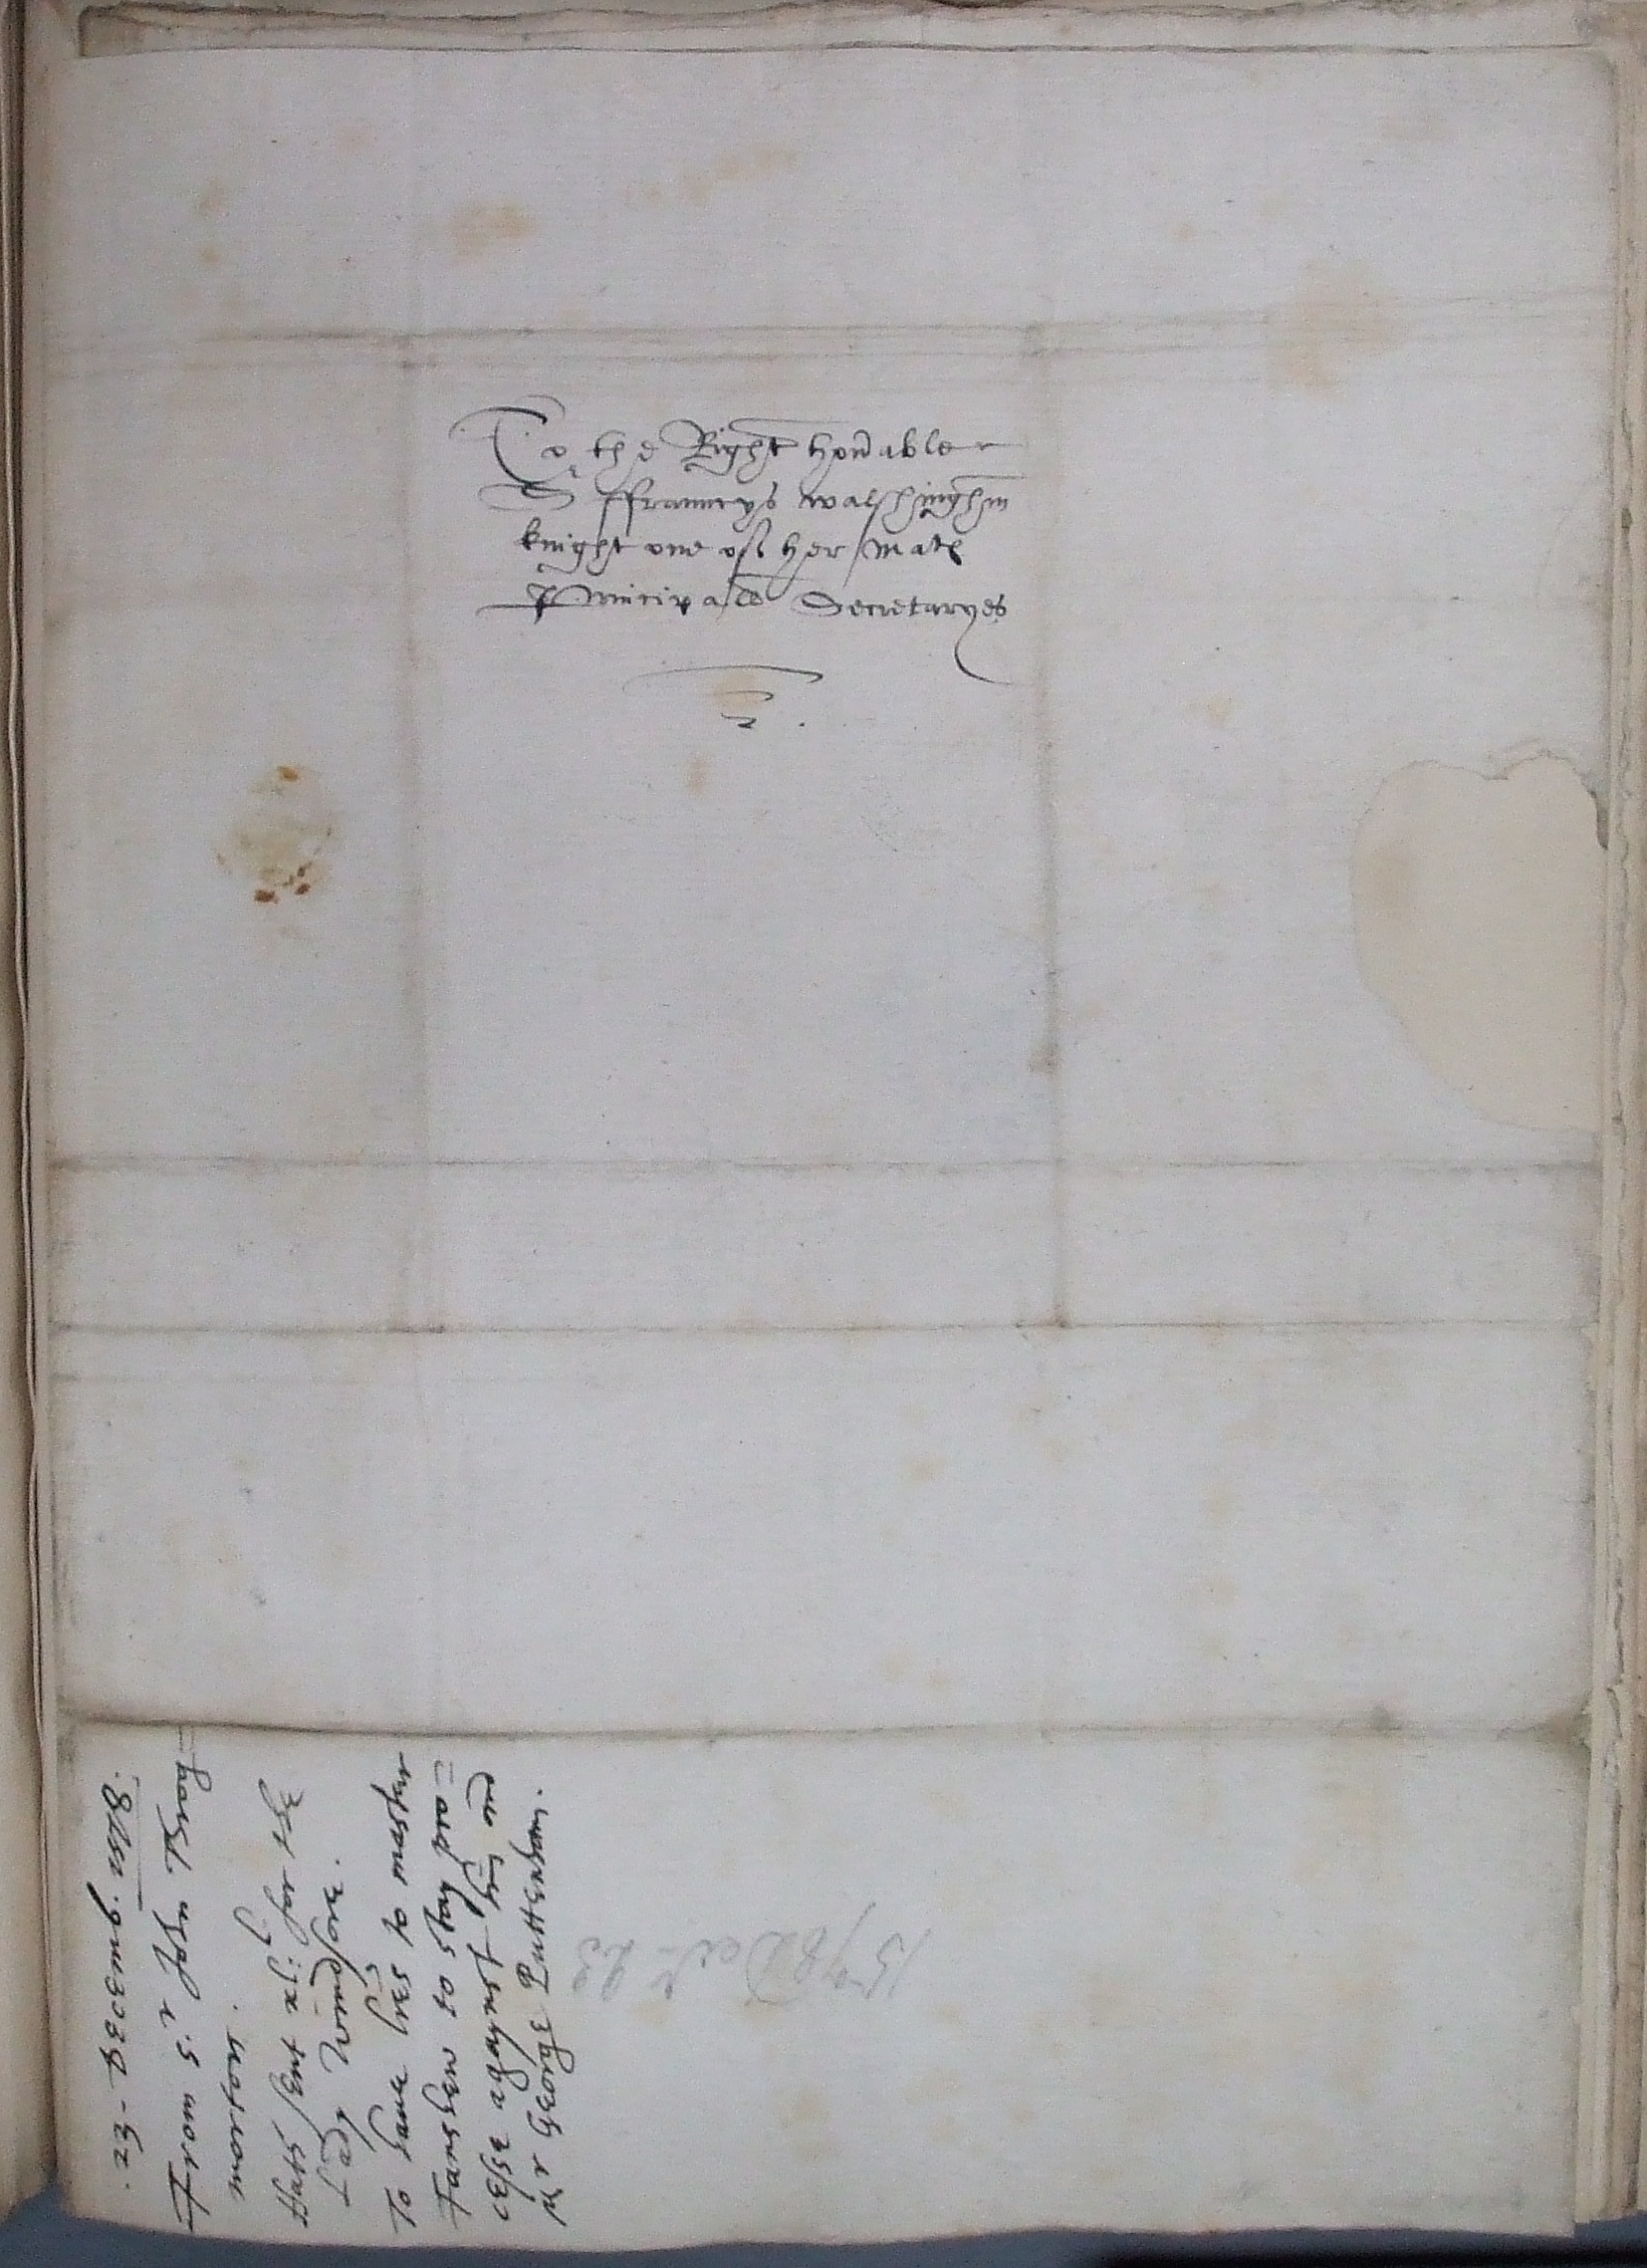 To the Right honable
Sr ffrauncys walshinghm
knight one of her Mats
Principall Secretaryes
. 23 - Decemb. 1578.
From Sr John Throg=
morton.
Hath sent xl li for the
Lady Windsore.
To haue lres to master
Fanshew to stay pro=
cesse agaynst hym and
Mr George Puttenham.
1578 Decr 23